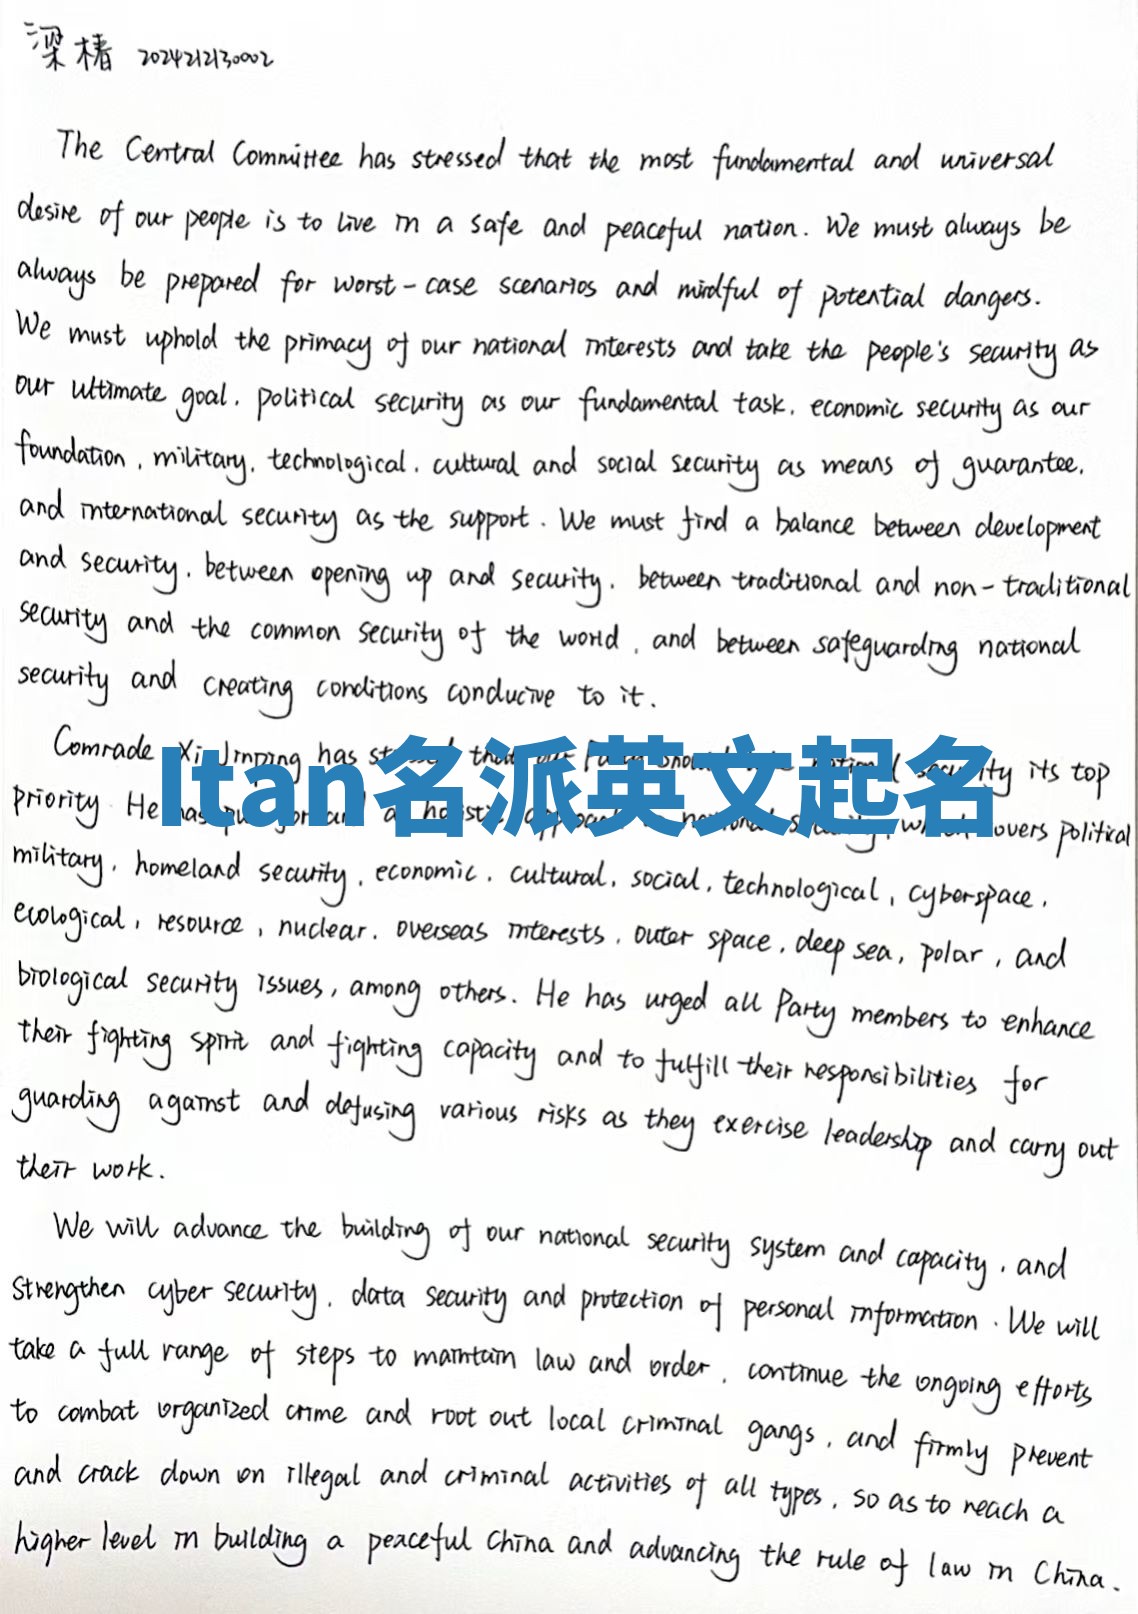 梁椿 2024212130002
The Central Committee has stressed that the most fundamental and universal
desire of our people is to live in a safe and peaceful nation. We must always be
always be prepared for worst-case scenarios and mindful of potential dangers.
We must uphold the primacy of our national interests and take the people's security as
our ultimate goal, political security as our fundamental task, economic security as our
foundation, military, technological, cultural and social security as means of guarantee,
and international security as the support. We must find a balance between development
and security, between opening up and security, between traditional and non-traditional
security and the common security of the world, and between safeguarding national
security and creating conditions conducive to it.
Comrade Xi Jinping has that our national security its top
Itan名派英文起名
priority. He has a holistic national covers political
military, homeland security, economic, cultural, social, technological, cyberspace,
ecological, resource, nuclear, overseas interests, outer space, deep sea, polar, and
biological security issues, among others. He has urged all Party members to enhance
their fighting spirit and fighting capacity and to fulfill their responsibilities for
guarding against and defusing various risks as they exercise leadership and carry out
their work.
We will advance the building of our national security system and capacity, and
strengthen cyber security, data security and protection of personal information. We will
take a full range of steps to maintain law and order, continue the ongoing efforts
to combat organized crime and root out local criminal gangs, and firmly prevent
and crack down on illegal and criminal activities of all types, so as to reach a
higher level in building a peaceful China and advancing the rule of law in China.